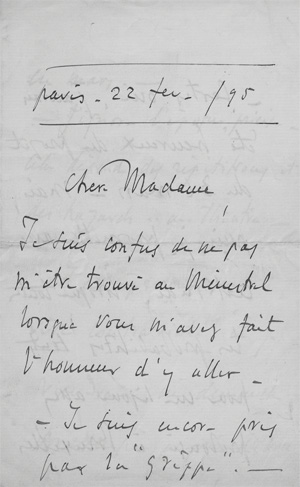 paris - 22 fev - /95
Chère Madame,
Je suis confus de ne pas
m'être trouvé au Ménestrel
lorsque vous m'avez fait
l'honneur d'y aller -
- Je suis encore pris
par la "grippe". -